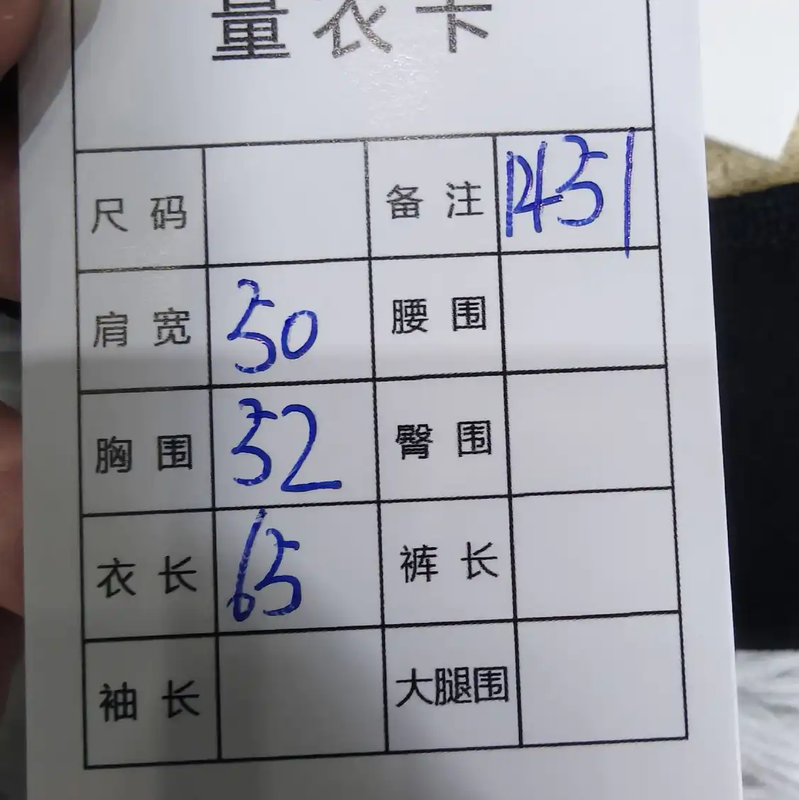 量衣卡
尺码 备注 1451
肩宽 50 腰围
胸围 52 臀围
衣长 65 裤长
袖长 大腿围